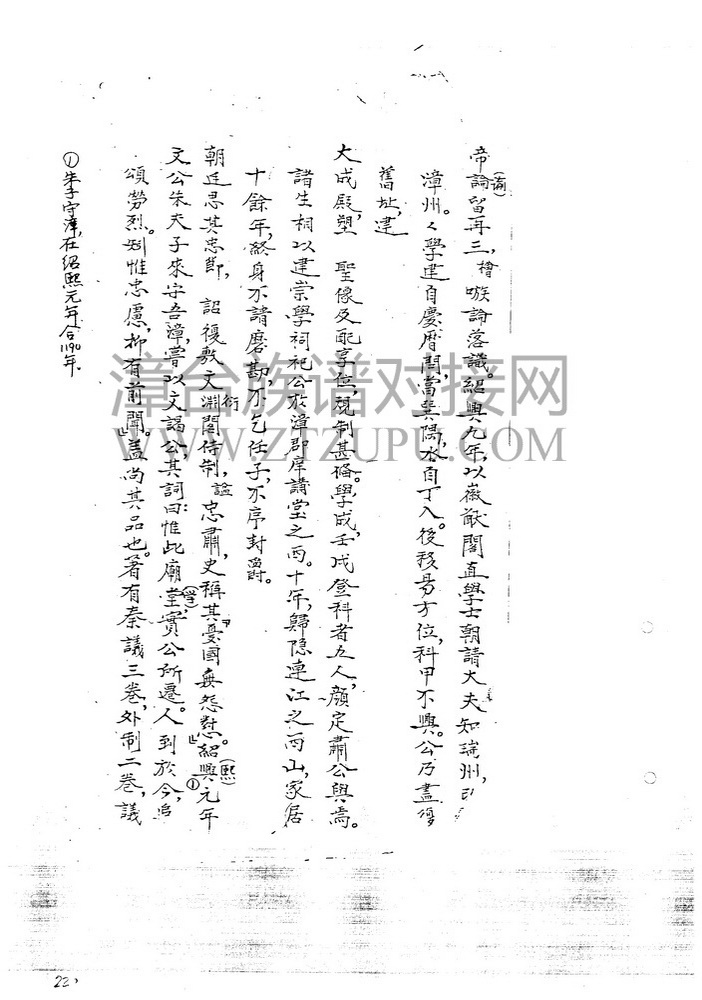 帝論(諭)留再三，檜嗾論落議。紹興九年，以徽猷閣直學士朝請大夫知瑞州，
漳州。々學建自慶曆間，當巽隅，水自丁入。後移易方位，科甲不興。公乃盡復
舊址，建
大成殿，塑 聖像及配享位，規制甚備。學成，壬戌登科者五人，顏定肅公與焉。
諸生相以建崇學祠祀公於漳郡庠講堂之西。十年，歸隐連江之西山，家居
十餘年，終身不請磨勘，不乞任子，不序封爵。
朝廷思其忠節，詔復敷文衍淵閣待制，謚忠肅，史稱其『憂國無怨懟』。紹興(熙)元年①
文公朱夫子來守吾漳，嘗以文謁公，其詞曰：惟此廟堂(學)，實公所遷。人到於今，追
頌勞烈。矧惟忠慮，抑有前聞。』盖尚其品也。著有秦議三卷，外制二卷，議
①朱子守漳，在紹熙元年合1190年.
漳台族谱对接网
WWW.ZTZUPU.COM
22